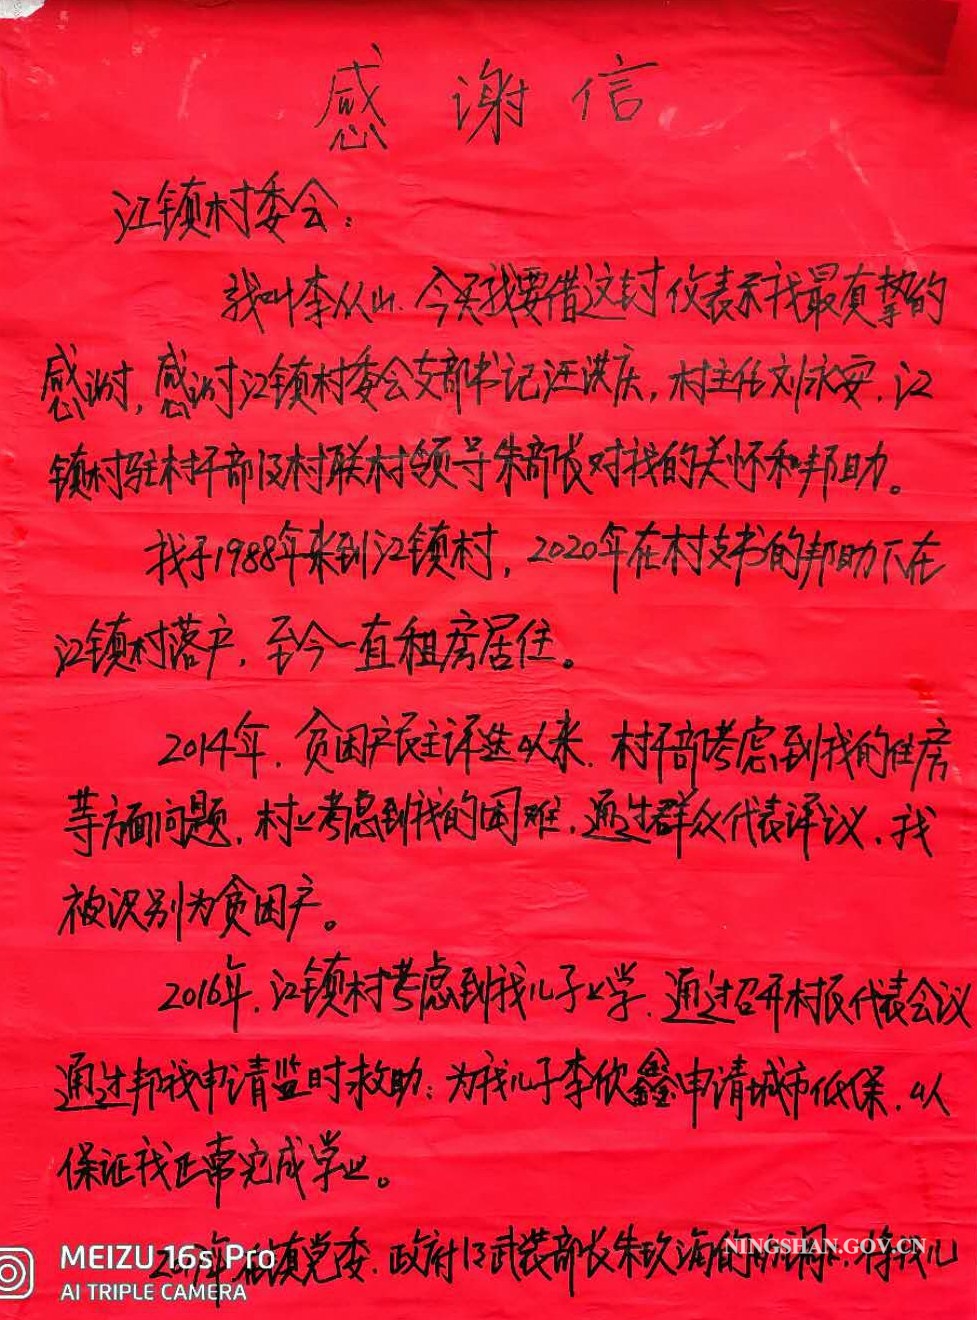 感谢信
江镇村委会：
我叫李从山.今天我要借这封仪表示我最真挚的
感谢，感谢江镇村委会支部书记汪洪庆，村主任刘永安.江
镇村驻村干部及村联村领导朱部长对我的关怀和邦助。
我于1988年来到江镇村，2020年在村支书的邦助下在
江镇村落户，至今一直租房居住。
2014年.贫困户民主评选以来.村干部考虑到我的住房
等方面问题.村上考虑到我的困难.通过群众代表评议.我
被识别为贫困户。
2016年.江镇村考虑到我儿子上学.通过召开村民代表会议
通过邦我申请监时救助；为我儿子李欣鑫申请城市低保.以
保证我正常完成学业。
在镇党委.政府及武装部长朱玖海的 将我儿
MEIZU 16s Pro
AI TRIPLE CAMERA
NINGSHAN.GOV.CN